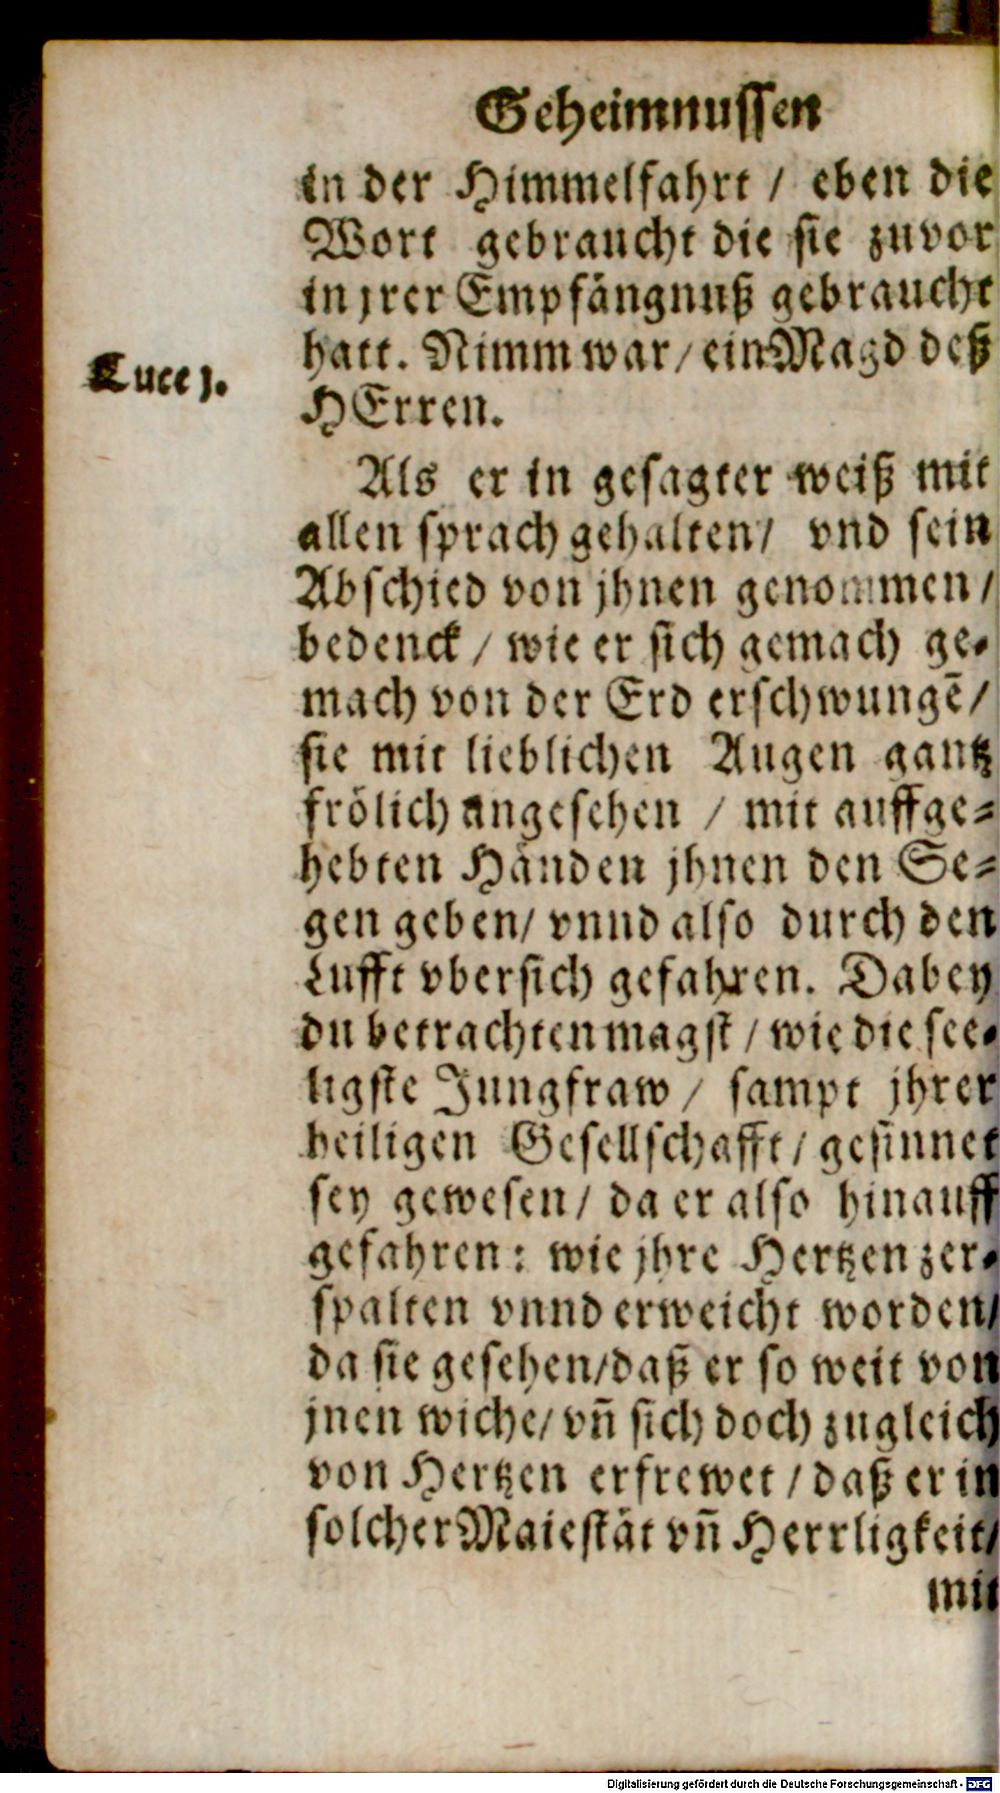 Geheimnussen
in der Himmelfahrt / eben die
Wort gebraucht die sie zuvor
in jrer Empfängnuß gebraucht
hatt. Nimm war / ein Magd deß
HErren.
Luce j.
Als er in gesagter weiß mit
allen sprach gehalten / vnd sein
Abschied von jhnen genommen /
bedenck / wie er sich gemach ge-
mach von der Erd erschwungē /
sie mit lieblichen Augen gantz
frölich angesehen / mit auffge-
hebten Händen jhnen den Se-
gen geben / vnnd also durch den
Lufft vbersich gefahren. Dabey
du betrachten magst / wie die see-
ligste Jungfraw / sampt jhrer
heiligen Gesellschafft / gesinnet
sey gewesen / da er also hinauff
gefahren: wie jhre Hertzen zer-
spalten vnnd erweicht worden /
da sie gesehen / daß er so weit von
jnen wiche / vñ sich doch zugleich
von Hertzen erfrewet / daß er in
solcher Maiestät vñ Herrligkeit /
mit
Digitalisierung gefördert durch die Deutsche Forschungsgemeinschaft - DFG